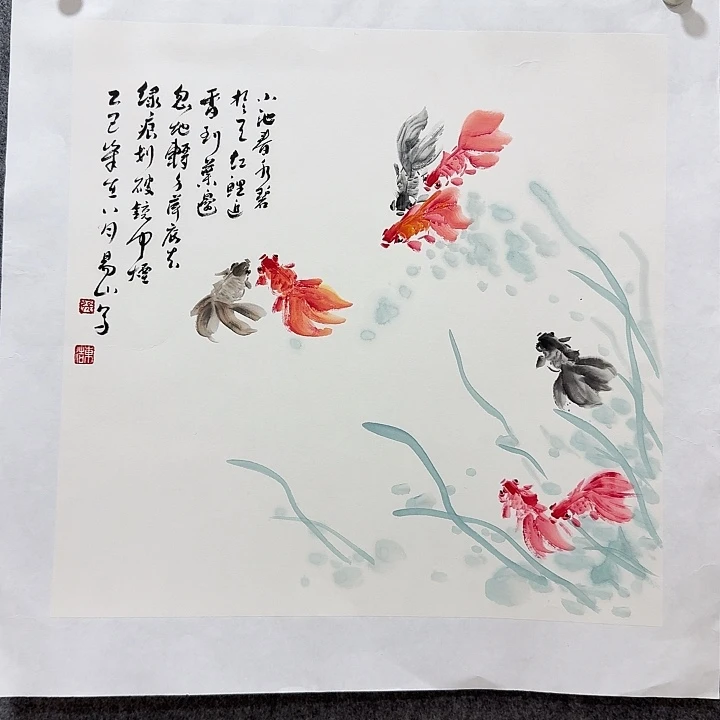 小池春水碧
於天红鲤迎
香到叶边
忽地转身荷底去
绿痕划破镜中烟
乙巳年五八月易山写